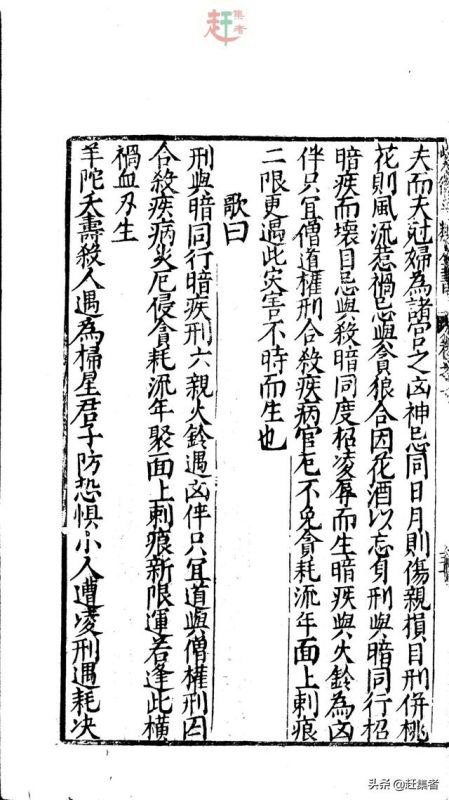 赶集者
夫而夫尅婦為諸宮之凶神忌同日月則傷親損目刑併桃
花則風流惹禍忌與貪狼合因花酒以忘身刑與暗同行招
暗疾而壞目忌與殺暗同度招凌辱而生暗疾與火鈴為凶
伴只宜僧道權刑合殺疾病官厄不免貪耗流年面上刺痕
二限更遇此災害不時而生也
歌曰
刑與暗同行暗疾刑六親火鈴遇凶伴只宜道與僧權刑因
合殺疾病災厄侵貪耗流年聚面上刺痕新限運若逢此橫
禍血刃生
羊陀夭壽殺人遇為掃星君子防恐懼小人遭凌刑遇耗决
头条 @赶集者